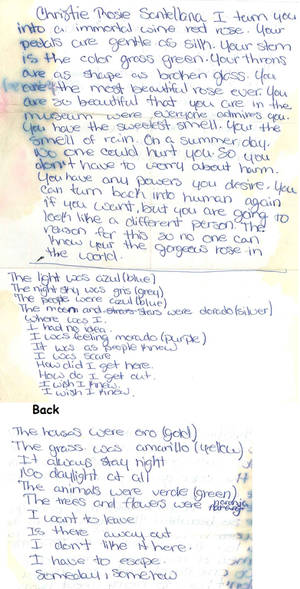 Christie Rosie Santellana I turn you
into a immortal wine red rose. Your
petals are gentle as silk. Your stem
is the color grass green. Your throns
are as shape as broken glass. You
are the most beautiful rose ever. You
are so beautiful that you are in the
museum were everyone admires you.
You have the sweetest smell. Your the
smell of rain. On a summer day.
No one could hurt you. So you
don't have to worry about harm.
You have any powers you desire. You
can turn back into human again
if you want, but you are going to
look like a different person. The
reason for this so no one can
know your the gorgeous rose in
the world.
The light was azul (blue)
The night sky was gris (grey)
The people were azul (blue)
The moon and stars were dorado (silver)
Where was I.
I had no idea.
I was feeling morado (purple)
It was as people knew
I was scare
How did I get here.
How do I get out.
I wish I knew.
I wish I knew.
Back
The houses were oro (gold)
The grass was amarillo (yellow)
It always stay night
No daylight at all
The animals were verde (green)
The trees and flowers were
I want to leave
Is there away out
I don't like it here.
I have to escape.
Someday, somehow